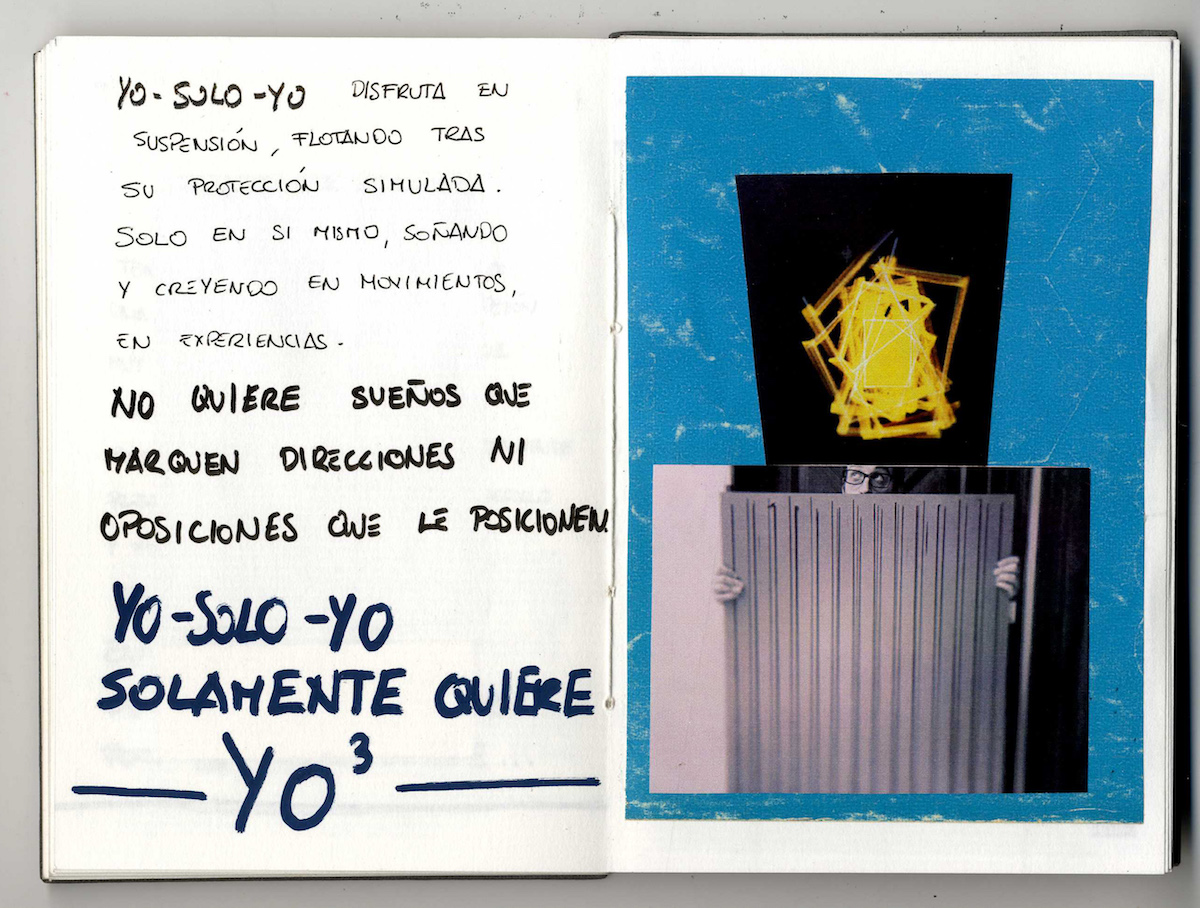 YO-SOLO-YO DISFRUTA EN
SUSPENSIÓN, FLOTANDO TRAS
SU PROTECCIÓN SIMULADA.
SOLO EN SI MISMO, SOÑANDO
Y CREYENDO EN MOVIMIENTOS,
EN EXPERIENCIAS.
NO QUIERE SUEÑOS QUE
MARQUEN DIRECCIONES NI
OPOSICIONES QUE LE POSICIONEN.
YO-SOLO-YO
SOLAMENTE QUIERE
YO³